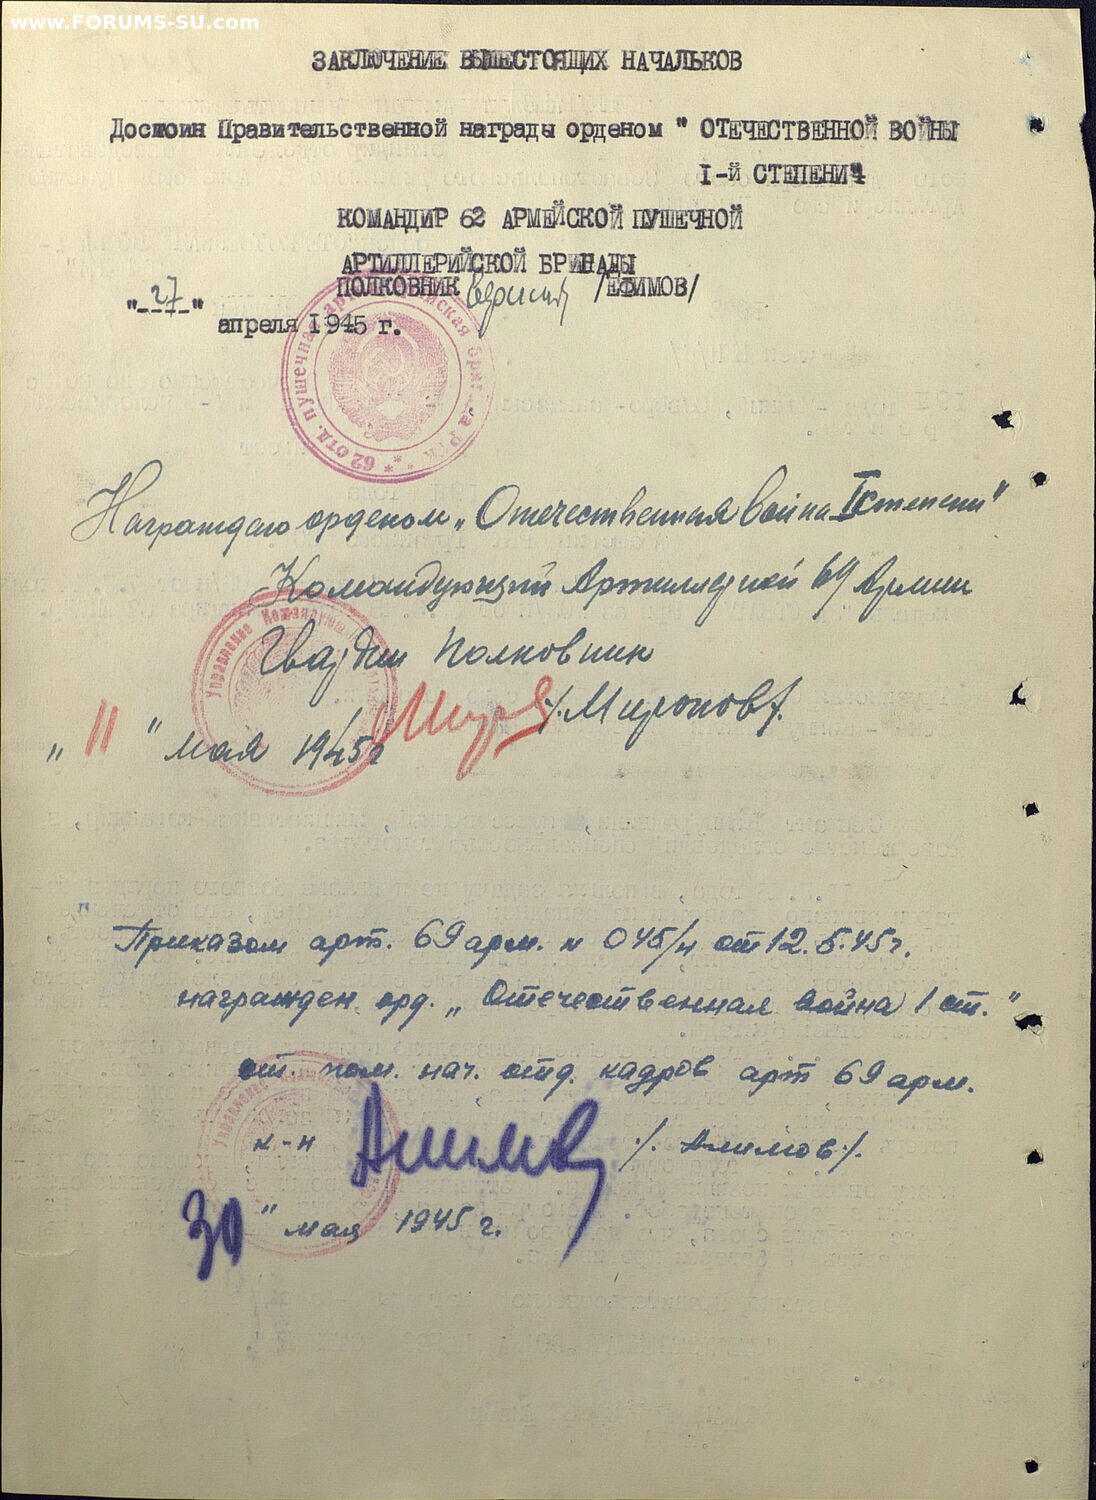 www.FORUMS-SU.com
ЗАКЛЮЧЕНИЕ ВЫШЕСТОЯЩИХ НАЧАЛЬКОВ
Достоин Правительственной награды орденом " ОТЕЧЕСТВЕННОЙ ВОЙНЫ
I-й СТЕПЕНИ"
КОМАНДИР 62 АРМЕЙСКОЙ ПУШЕЧНОЙ
АРТИЛЛЕРИЙСКОЙ БРИГАДЫ
ПОЛКОВНИК /ЕФИМОВ/
"27"
апреля 1945 г.
62 отд. пушечная артиллерийская бригада РГК
Награждаю орденом „Отечественная война I степени"
Командующий Артиллерией 69 Армии
Гвардии Полковник
/.Миронов/.
„ 11 " мая 1945г
Управление Командующего
Приказом арт. 69 арм. н 045/н от 12.5.45г.
награжден орд. „ Отечественная война 1 ст."
ст. пом. нач. отд. кадров арт 69 арм.
к-н Алимов /. Алимов/.
30 " мая 1945 г.